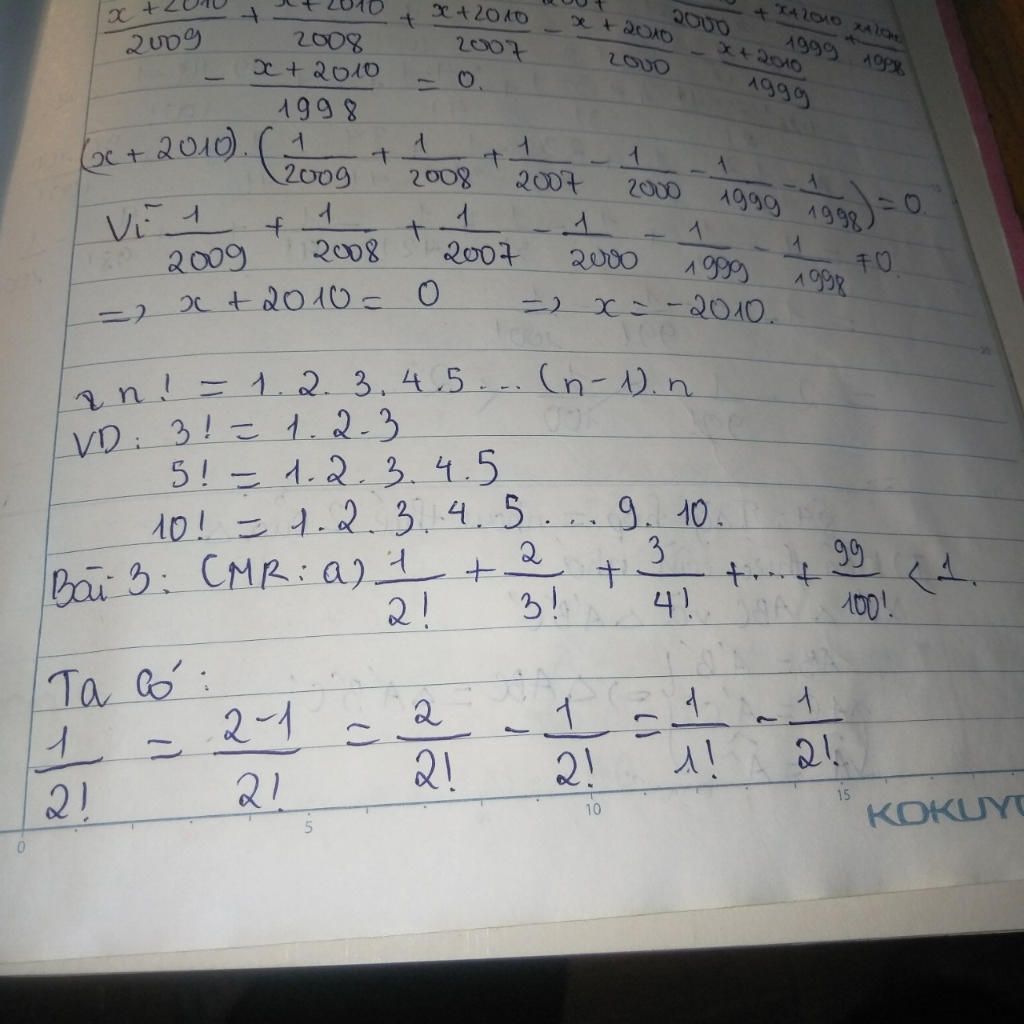 x+2010/2009 + x+2010/2008 + x+2010/2007 - x+2010/2000 - x+2010/1999
2000 + x+2010/1999 + x+2010/1998
- x+2010/1998 = 0.
(x+2010).(1/2009 + 1/2008 + 1/2007 - 1/2000 - 1/1999 - 1/1998) = 0.
Vì 1/2009 + 1/2008 + 1/2007 - 1/2000 - 1/1999 - 1/1998 ≠ 0.
=> x + 2010 = 0 => x = -2010.
n! = 1.2.3.4.5...(n-1).n
VD: 3! = 1.2.3
5! = 1.2.3.4.5
10! = 1.2.3.4.5...9.10.
Bài 3: (MR: a) 1/2! + 2/3! + 3/4! + ... + 99/100! < 1.
Ta có:
1/2! = 2-1/2! = 2/2! - 1/2! = 1/1! - 1/2!
0 5 10 15 KOKUYO